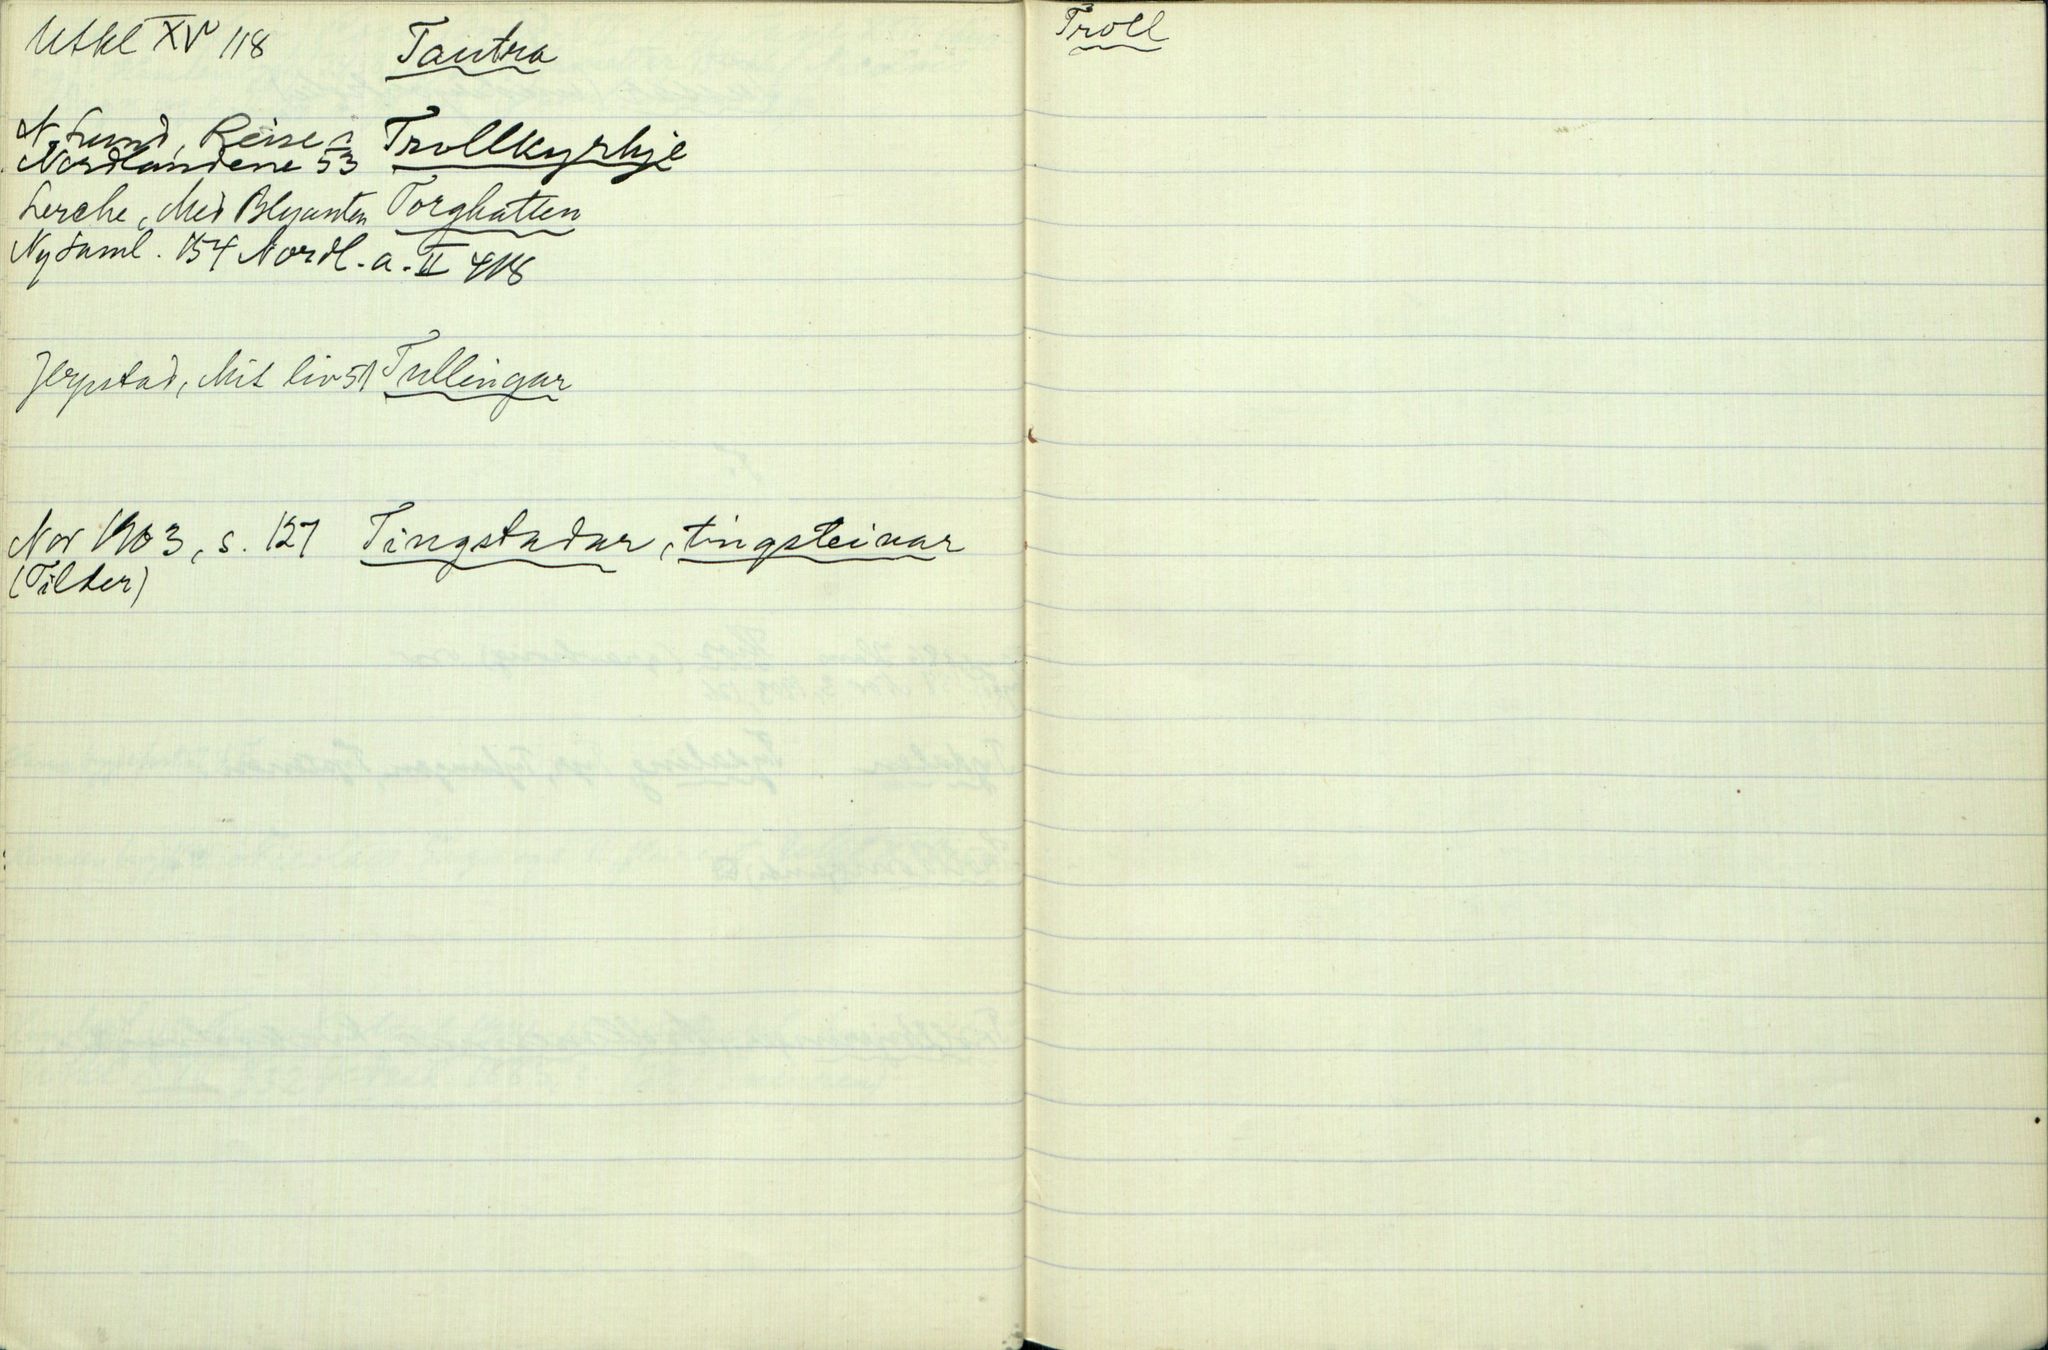 Utkl XV 118 Tautra
N. Lund, Reise i Trollkyrkje
Nordlandene 53
Lerche, Med Blyanten Torghatten
Ny Saml. 154 Nordl. a. II 418
Jerpstad, Mit liv 51 Tullingar
Nor 1903, s. 127 Tingstadar, tingsteinar
(Tiller)
Troll